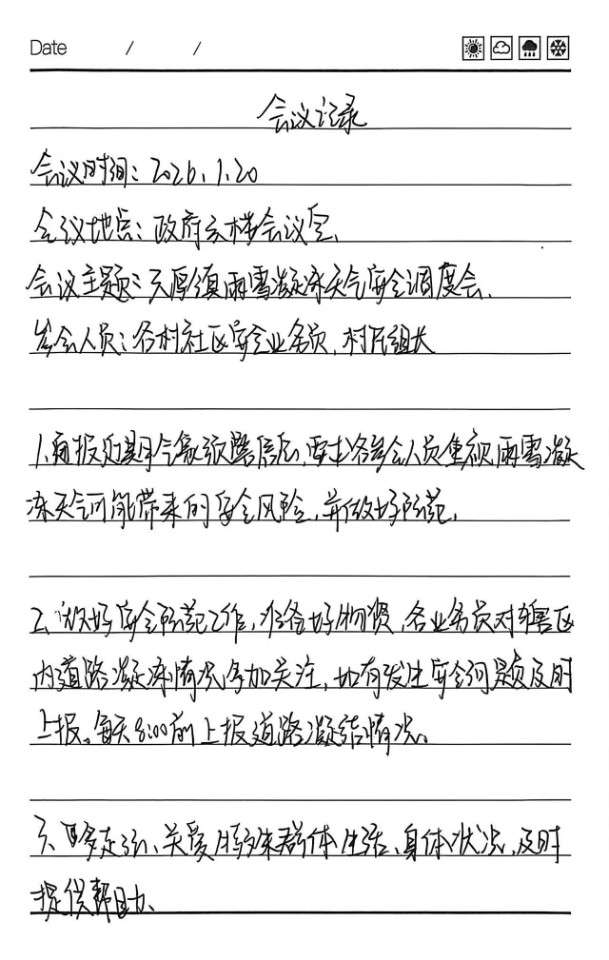 Date / /
会议记录
会议时间：2026.1.20
会议地点：政府六楼会议室
会议主题：天厚镇雨雪凝冻天气安全调度会.
参会人员：各村社区安全业务员,村民组长
1.通报近期气象预警信息,要求各参会人员重视雨雪凝
冻天气可能带来的安全风险,并做好防范.
2.做好安全防范工作,准备好物资,各业务员对辖区
内道路凝冻情况多加关注,如有发生安全问题及时
上报。每天8:00前上报道路凝结情况。
3、多走访、关爱特殊群体生活、身体状况,及时
提供帮助、